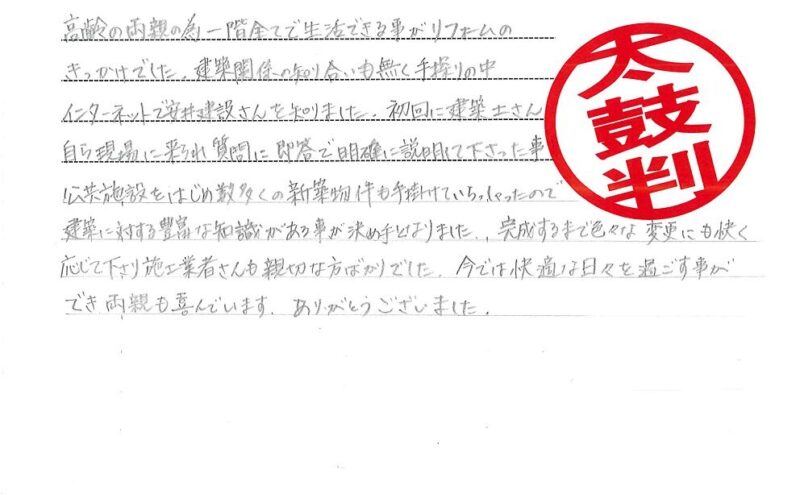 高齢の両親の為一階全てで生活できる事がリフォームの
きっかけでした。建築関係の知り合いも無く手探りの中
インターネットで安井建設さんを知りました。初回に建築士さん
自ら現場に来られ質問に即答で明確に説明して下さった事
公共施設をはじめ数多くの新築物件も手掛けていらっしゃったので
建築に対する豊富な知識がある事が決め手となりました。完成するまで色々な変更にも快く
応じて下さり施工業者さんも親切な方ばかりでした。今では快適な日々を過ごす事が
でき両親も喜んでいます。ありがとうございました。
太鼓判